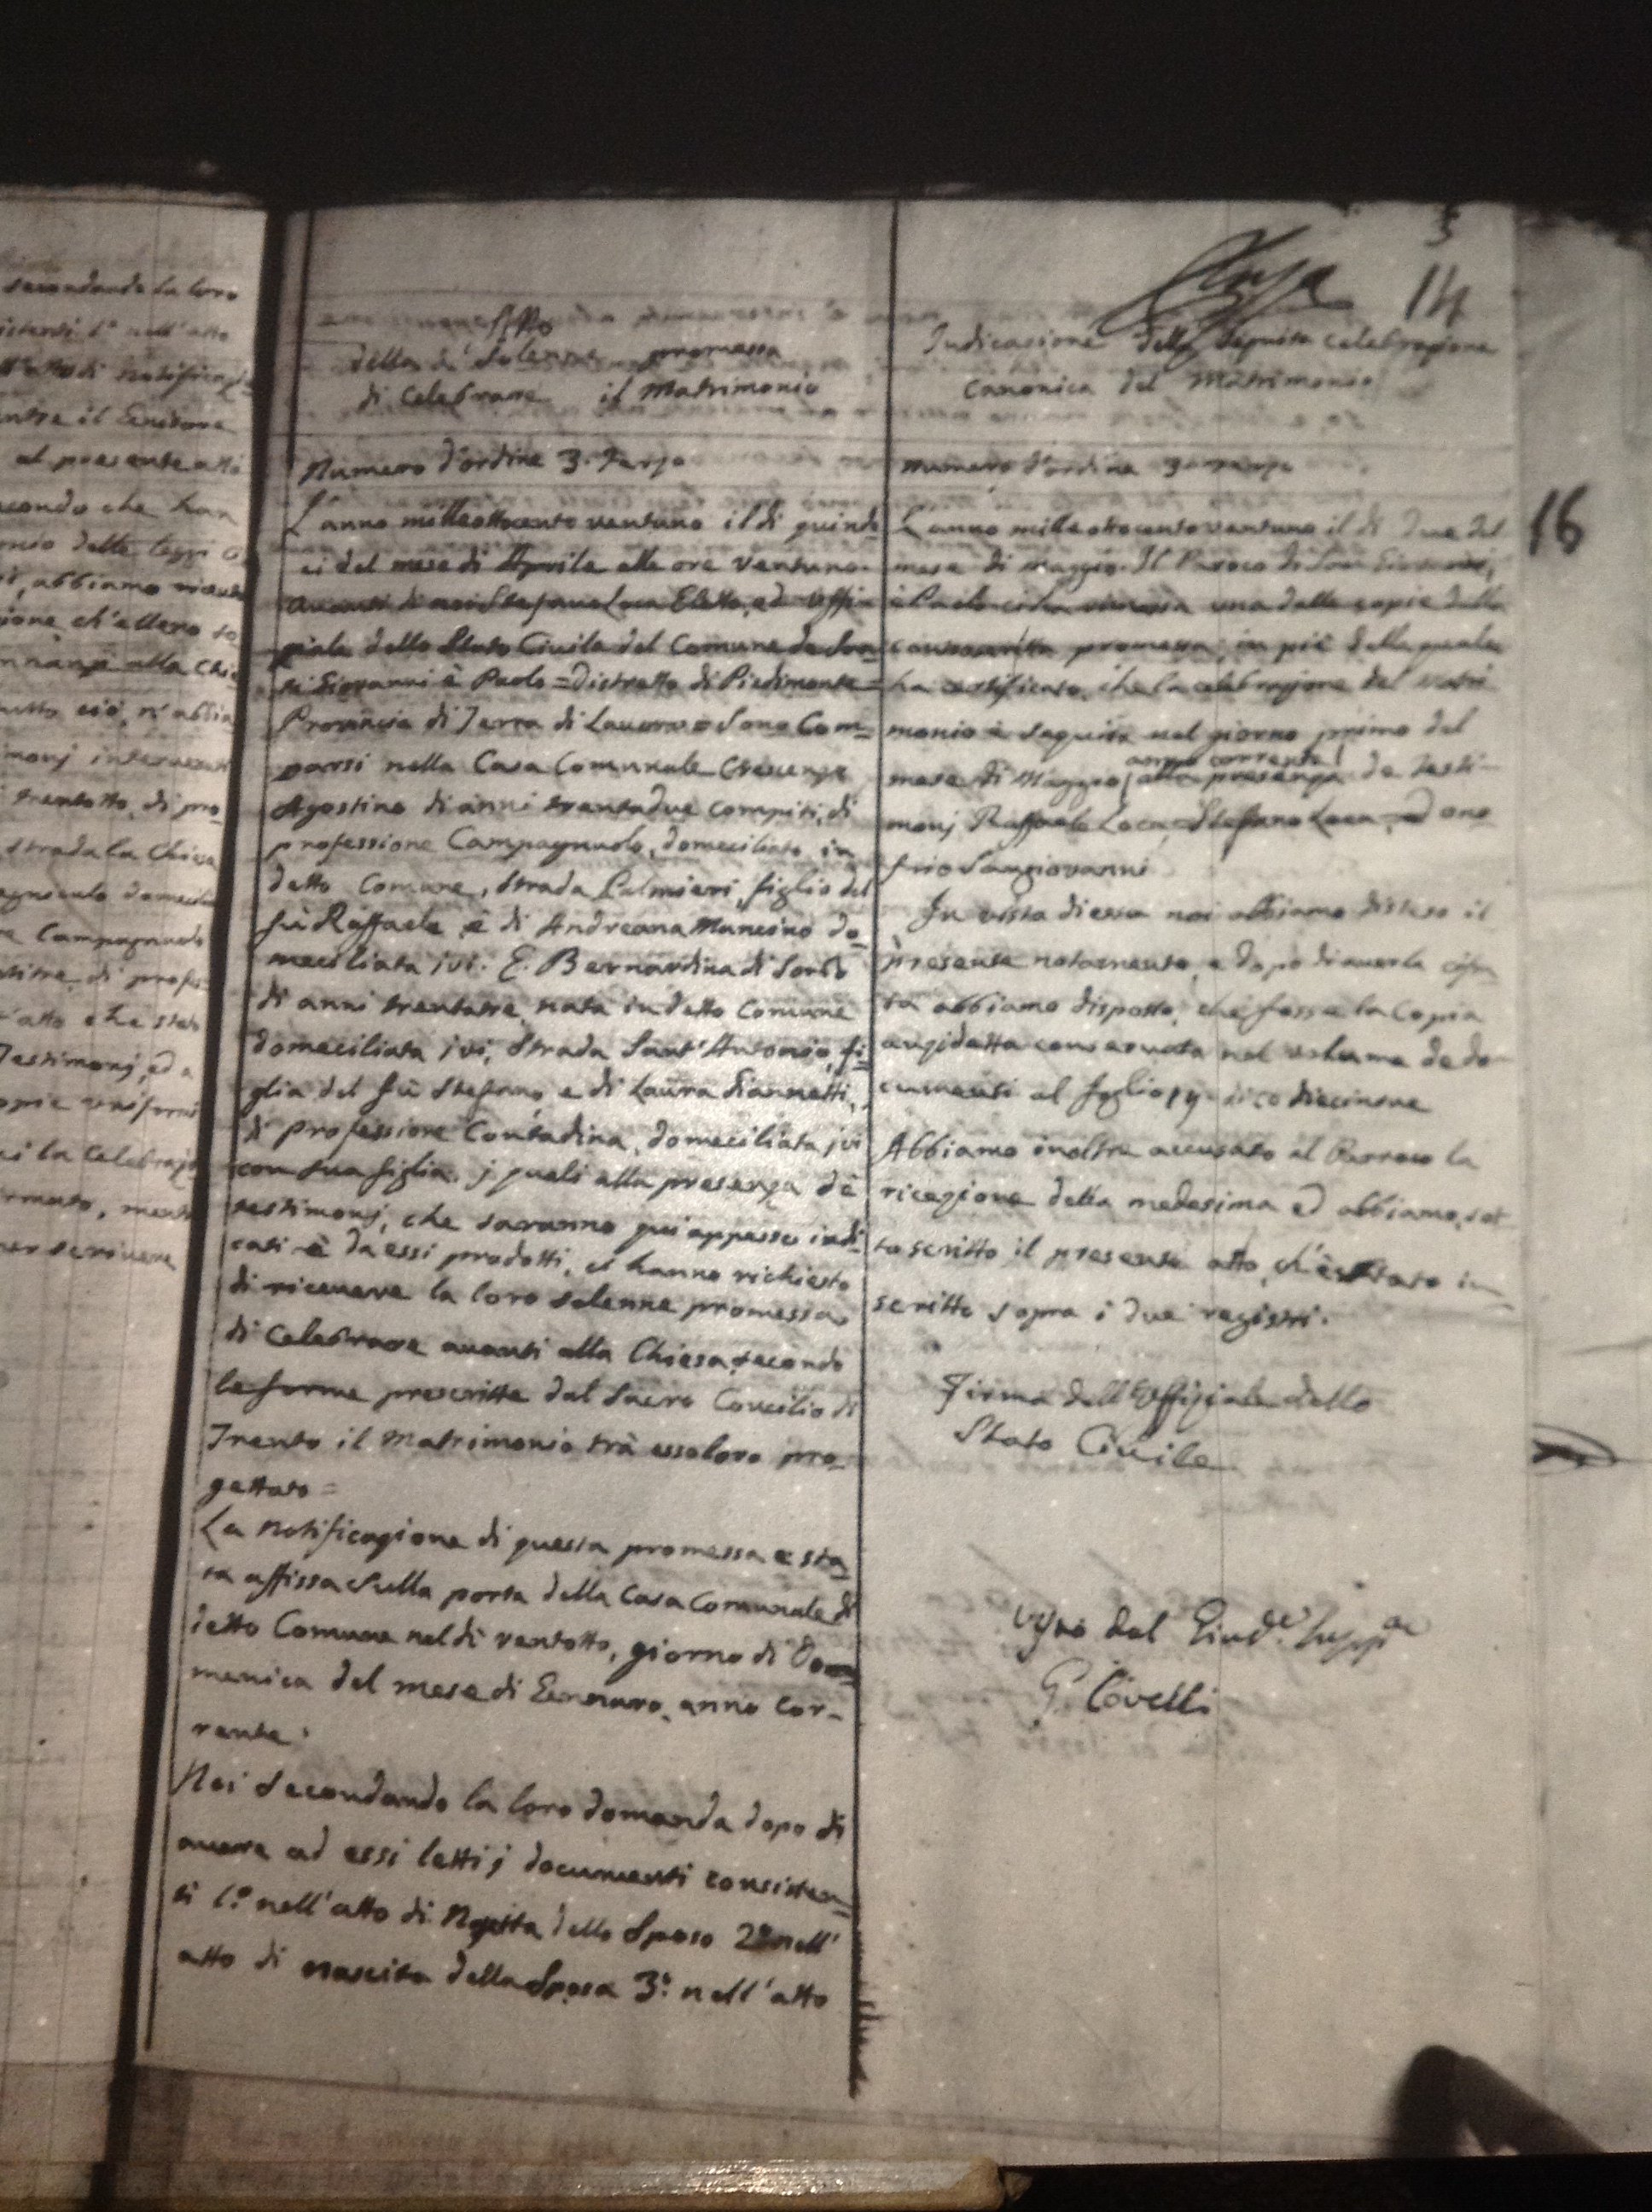 secondando la loro
nell'atto
di notifica
al presente atto
secondo che han
delle leggi
abbiamo
alla Chie
trentotto, di pro
strada la Chiesa
Campagnuolo
di profes
Testimonj, ed a
la Celebraz
Atto
della Solenne promessa
di Celebrare il Matrimonio
Numero d'ordine 3. Terzo
L'anno milleottocentoventuno il dì quindi
ci del mese di Aprile alle ore Ventuno
avanti di noi Stefano Loca Eletto, ed Uffi
ziale dello Stato Civile del Comune de San
ti Giovanni è Paolo = Distretto di Piedimonte =
Provincia di Terra di Lavoro = Sono Com=
parsi nella Casa Comunale Crescenzo
Agostino di anni trentadue compiti, di
professione Campagnuolo, domeciliato in
detto Comune, strada Palmieri, figlio del
fù Raffaele è di Andreana Mancino do
meciliata ivi. E. Bernardina di Sorbo
di anni trentatre, nata in detto Comune
domeciliata ivi, Strada Sant'Antonio, fi
glia del fù Stefano, e di Laura Giannetti,
di professione Contadina, domeciliata ivi
con sua figlia. j quali alla presenza dè
testimonj, che saranno qui appresso indi
cati è da essi prodotti, ci hanno richiesto
di ricevere la loro solenne promessa
di Celebrare avanti alla Chiesa secondo
le forme prescritte dal Sacro Concilio di
Trento il Matrimonio trà essoloro pro
gettato =
La notificazione di questa promessa è sta
ta affissa sulla porta della Casa Comunale di
detto Comune nel dì ventotto, giorno di Do
menica del mese di Gennaro, anno Cor-
rente.
Noi secondando la loro domanda dopo di
avere ad essi letti j documenti consisten
ti 1.º nell'atto di Nascita dello Sposo 2º nell'
atto di nascita della Sposa 3.º nell'atto
3
14
Indicazione della seguita celebrazione
Canonica del Matrimonio
Numero d'ordine 3 terzo
L'anno milleottocentoventuno il dì due del
mese di Maggio. Il Paroco di San Giovanni,
è Paolo ci ha rimessa una delle copie della
controscritta promessa; in piè della quale
ha certificato, che la celebrazione del matri
monio è seguita nel giorno primo del
anno corrente
mese di Maggio alla presenza de testi-
monj Raffaele Loca, Stefano Loca, ed Ono
frio Sangiovanni
In vista di essa noi abbiamo disteso il
presente notamento, e dopo di averla cifra
ta abbiamo disposto, che fosse la Copia
anzidetta conservata nel volume de do
cumenti al foglio diecinove
Abbiamo inoltre accusato al Parroco la
ricezione della medesima ed abbiamo sot
toscritto il presente atto, ch'è stato in
scritto sopra i due registri.
Firma dell'Uffiziale dello
Stato Civile
dal Giud.e Supp.
G. Covelli
16